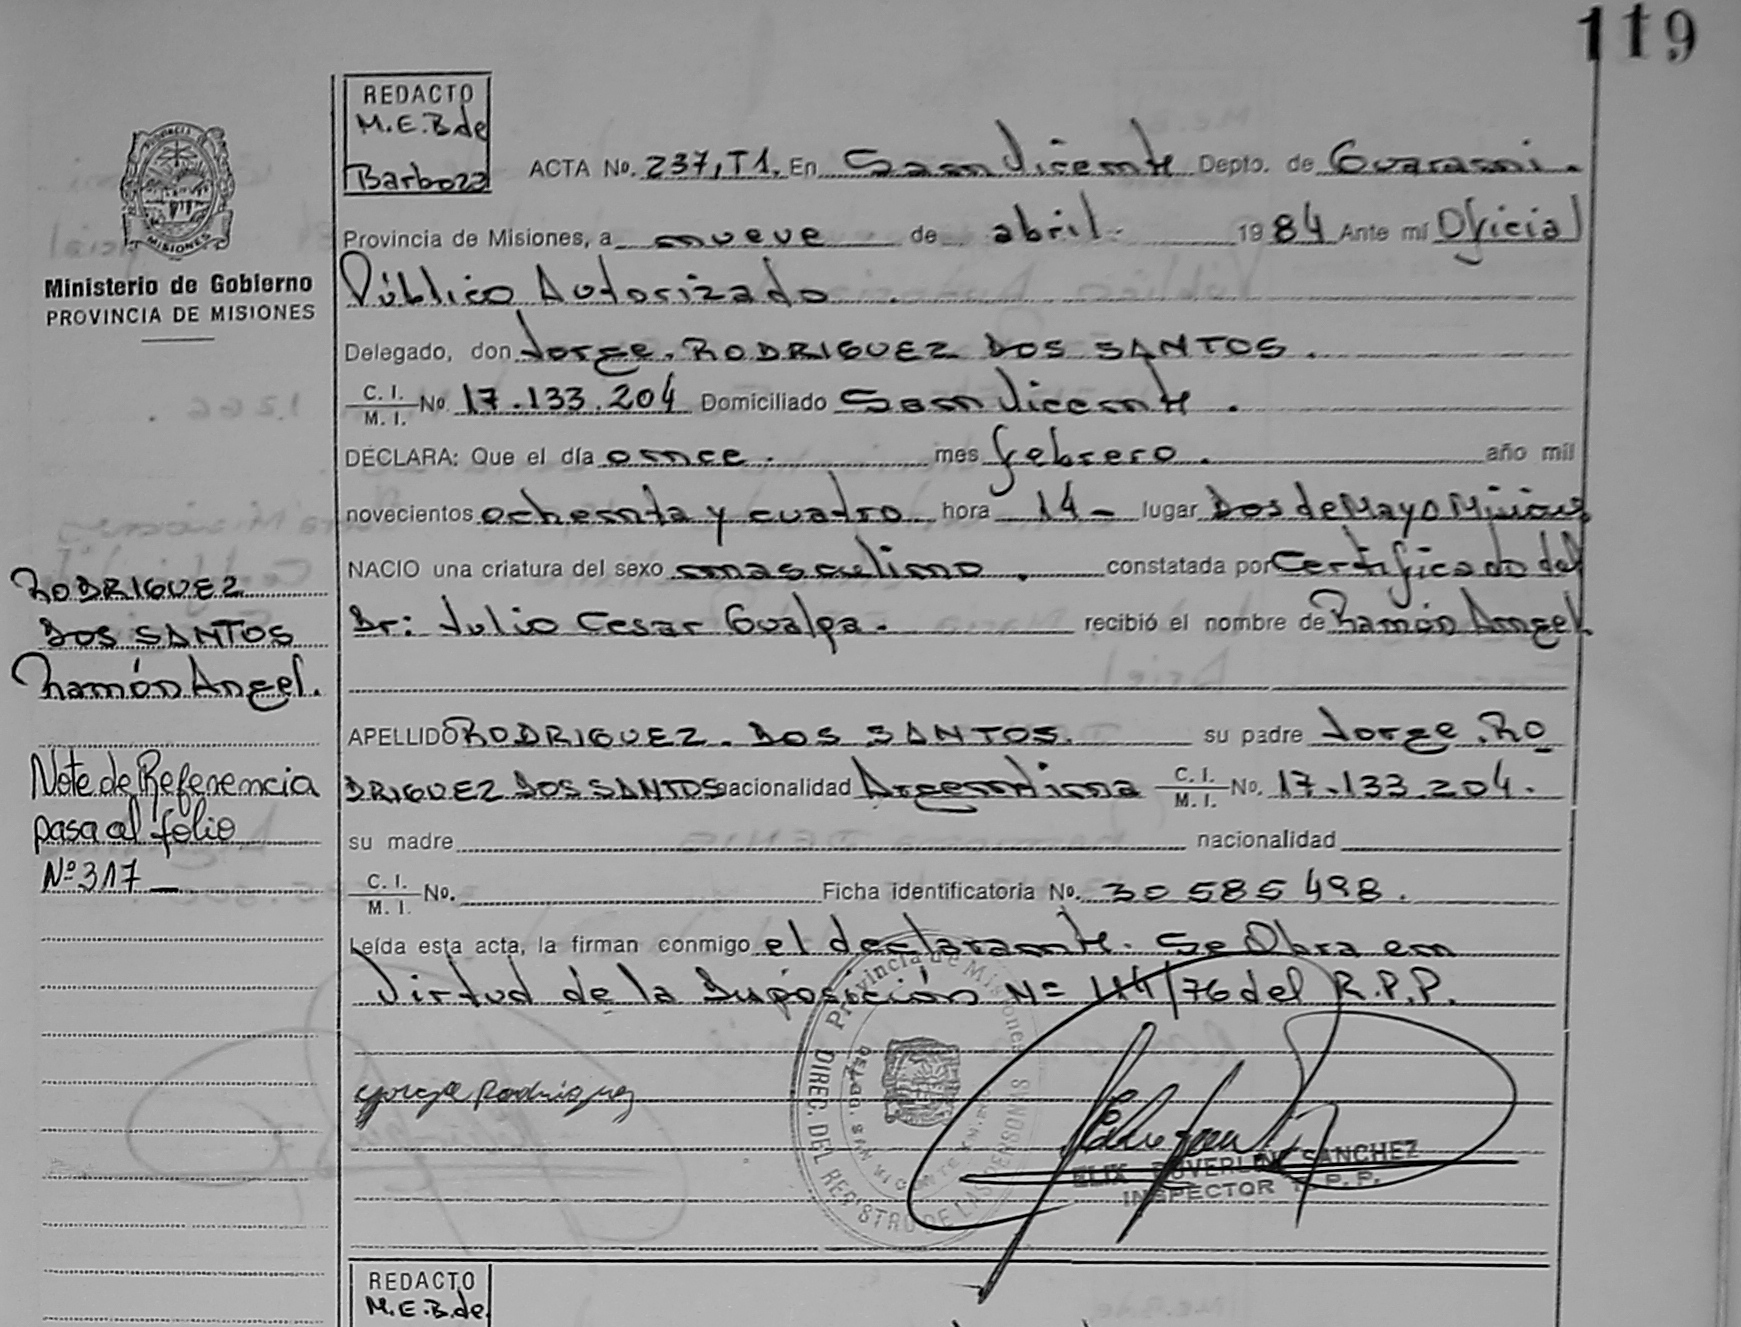 119
REDACTO
M.E.B de
Barboza
ACTA No. 237, T1. En San Vicente Depto. de Guaraní.
Provincia de Misiones, a nueve de abril. 1984 Ante mí Oficial
Público Autorizado
Delegado, don Jorge. RODRIGUEZ DOS SANTOS.
C. I. / M. I. No. 17.133.204 Domiciliado San Vicente.
DECLARA: Que el día once. mes febrero. año mil
novecientos ochenta y cuatro hora 14- lugar Dos de Mayo Misiones
NACIO una criatura del sexo masculino. constatada por Certificado del
Dr: Julio Cesar Gualpa. recibió el nombre de Ramón Angel
APELLIDO RODRIGUEZ. DOS SANTOS. su padre Jorge. RO
DRIGUEZ DOS SANTOS nacionalidad Argentina C. I. / M. I. No. 17.133.204.
su madre nacionalidad
C. I. / M. I. No. Ficha identificatoria No. 30 585 498.
Leída esta acta, la firman conmigo el declarante. Se Obra en
Virtud de la Disposición Nº 114/76 del R.P.P.
Provincia de Misiones
DIREC. DEL REGISTRO DE LAS PERSONAS
SANCHEZ
INSPECTOR R. P. P.
REDACTO
M.E.B. de
MISIONES
Ministerio de Gobierno
PROVINCIA DE MISIONES
RODRIGUEZ
DOS SANTOS
Ramón Angel.
Nota de Referencia
pasa al folio
Nº 317